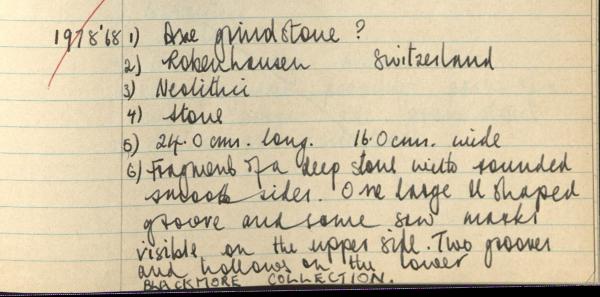 1978'68 1) Axe grindstone ?
2) Robenhausen Switzerland
3) Neolithic
4) Stone
5) 24.0 cms. long. 16.0 cms. wide
6) Fragment of a deep stone with rounded
smooth sides. One large U shaped
groove and some saw marks
visible on the upper side. Two grooves
and hollows on the lower
BLACKMORE COLLECTION.